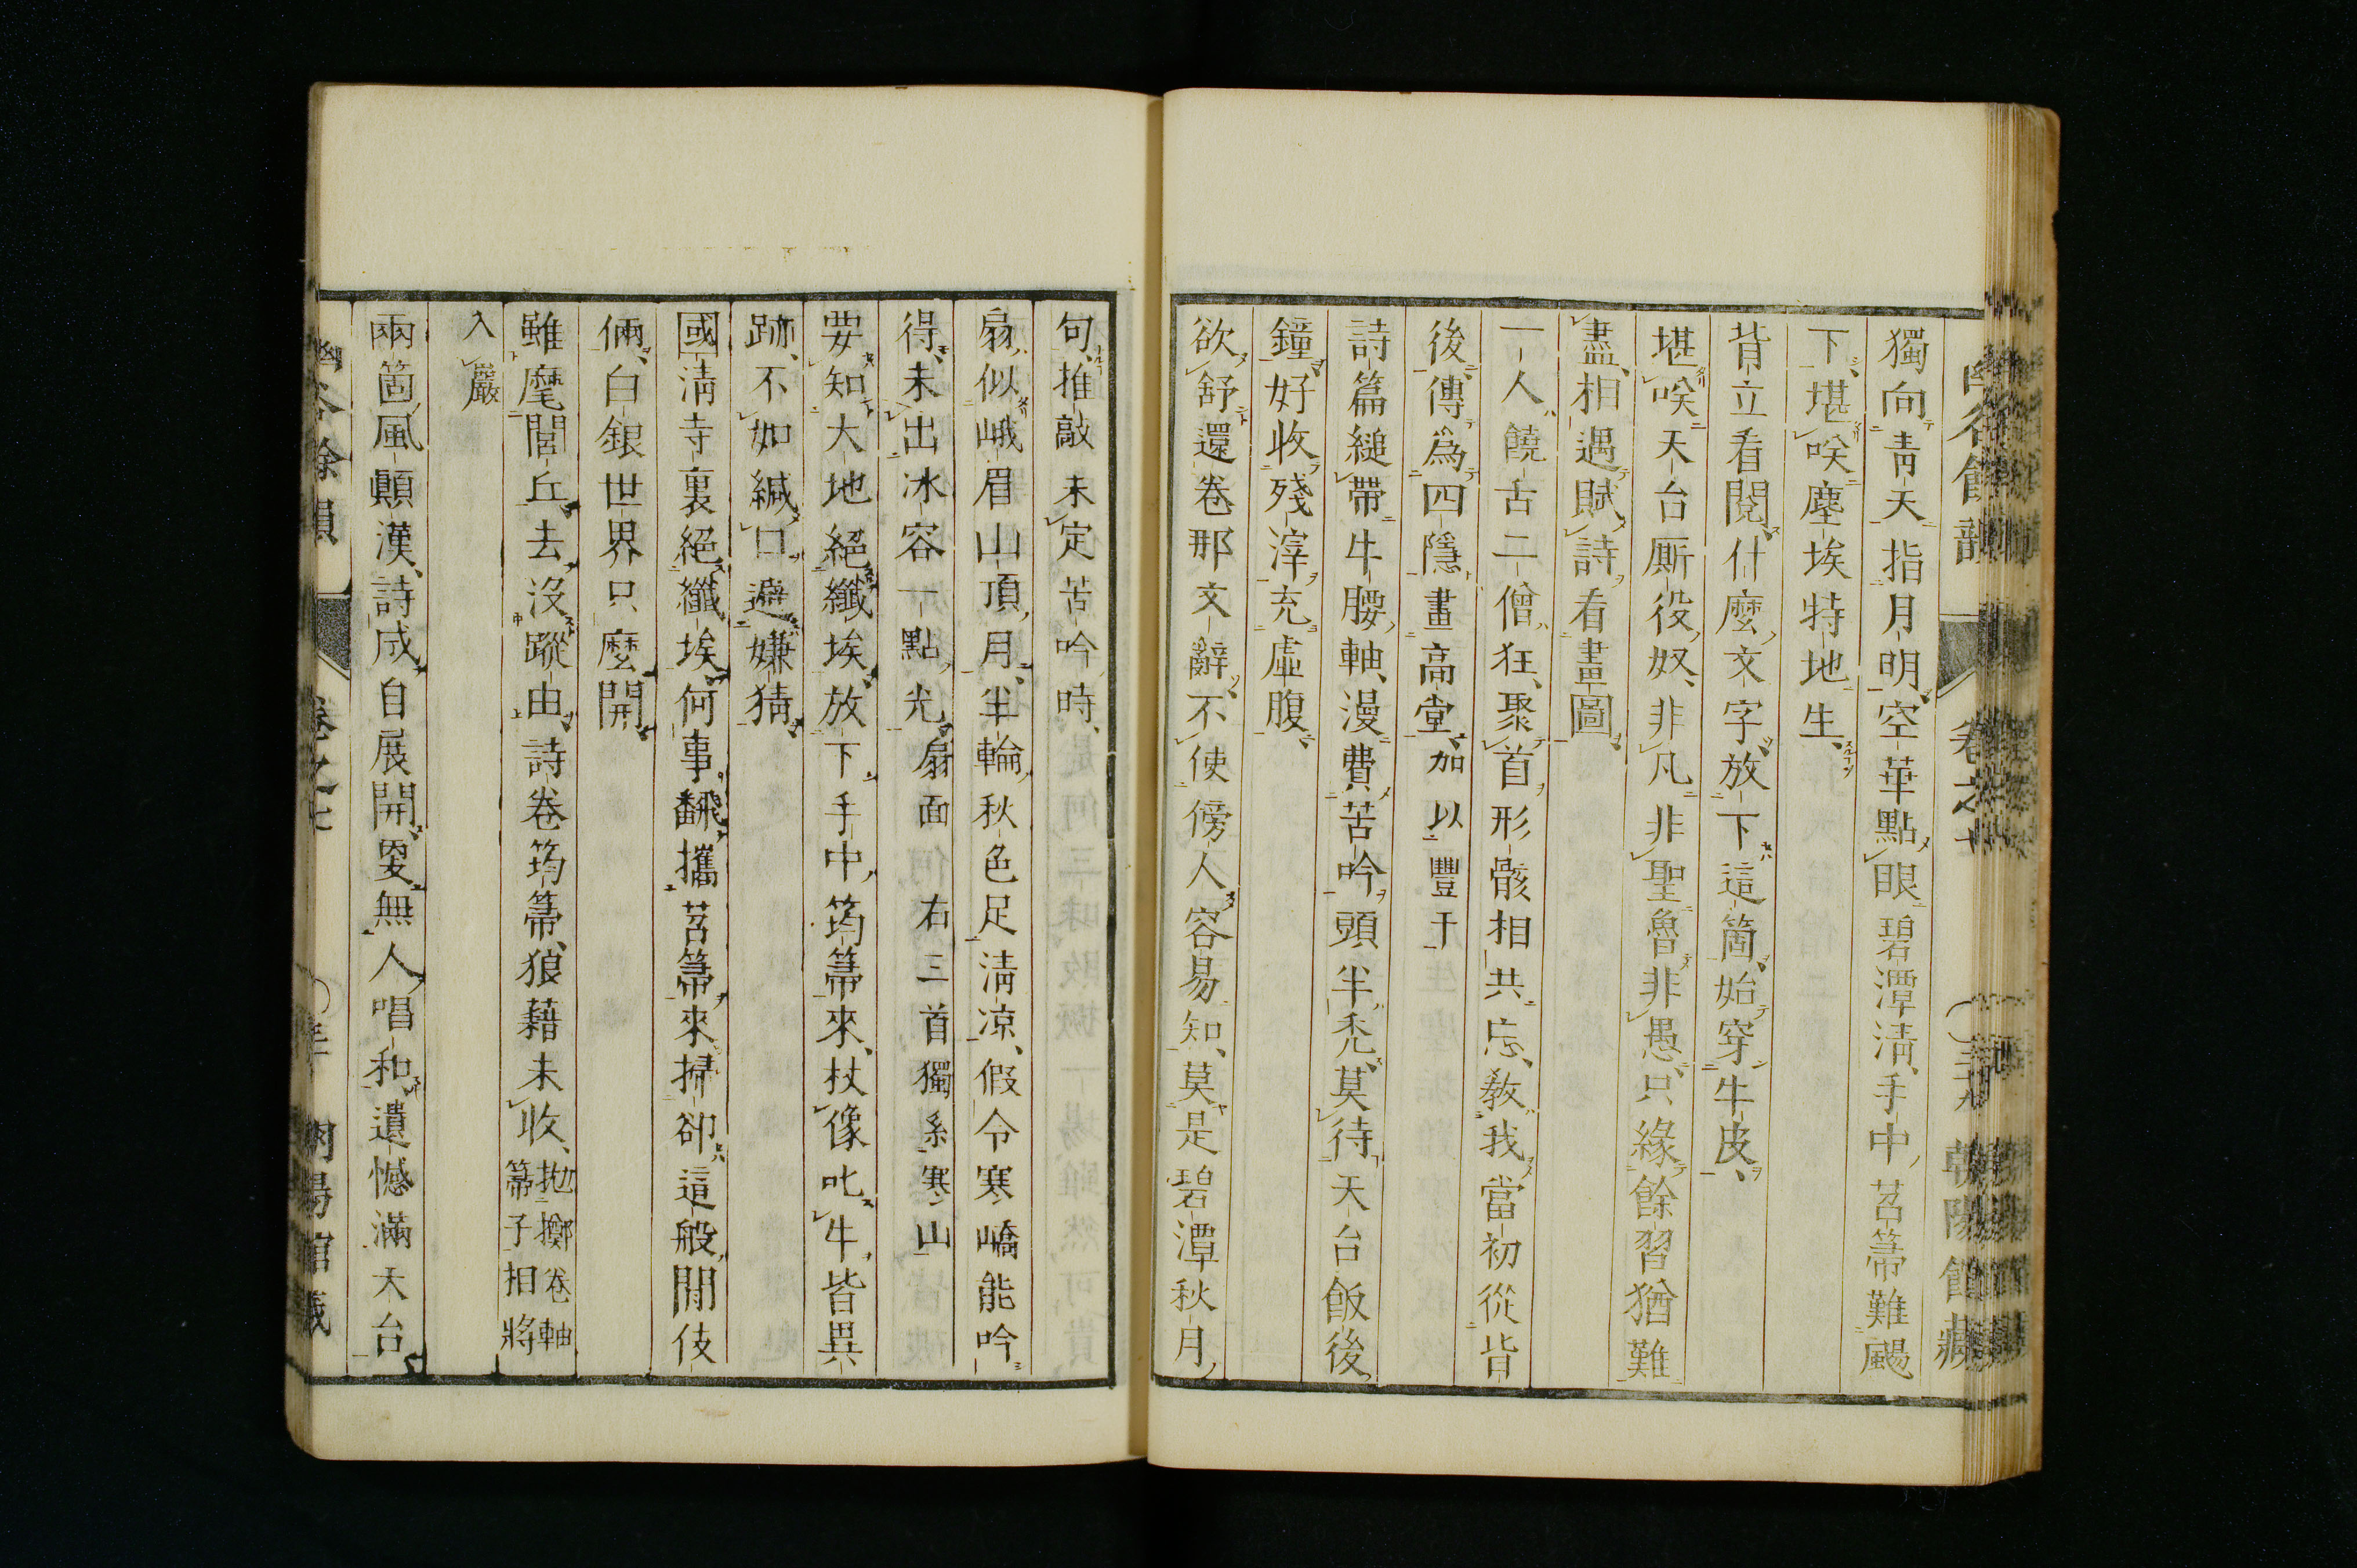 獨向青天指月明、空華點眼碧潭淸、手中苕箒難颺
下、堪咲塵埃特地生、
背立看閱什麼文字、放下這箇、始穿牛皮、
堪咲天台厮役奴、非凡非聖魯非愚、只緣餘習猶難
盡、相遇賦詩看畫圖
一人饒古二僧狂、聚首形骸相共忘、教我當初從背
後、傳為四隱畫高堂、加以豐干
詩篇縋帶牛腰軸、漫費苦吟頭半禿、莫待天台飯後
鐘、好收殘滓充虛腹、
欲舒還卷那文辭、不使傍人容易知、莫是碧潭秋月
句、推敲未定苦吟時、
扇似峨眉山頂月、半輪秋色足淸凉、假令寒嶠能吟
得、未出冰容一點光、扇面 右三首獨系寒山
要知大地絕纖埃、放下手中筠箒來、杖像叱牛皆異
跡、不如緘口避嫌猜、
國淸寺裏絕纖埃、何事翻攜苕箒來、掃卻這般閒伎
倆、白銀世界只麼開、
雖麾閭丘去、沒蹤由、詩卷筠箒、狼藉未收、拋擲卷軸
箒子相將
入巖
兩箇風顚漢、詩成自展開、要無人唱和、遺憾滿天台、
幽谷餘韻 卷之七 朝陽館藏